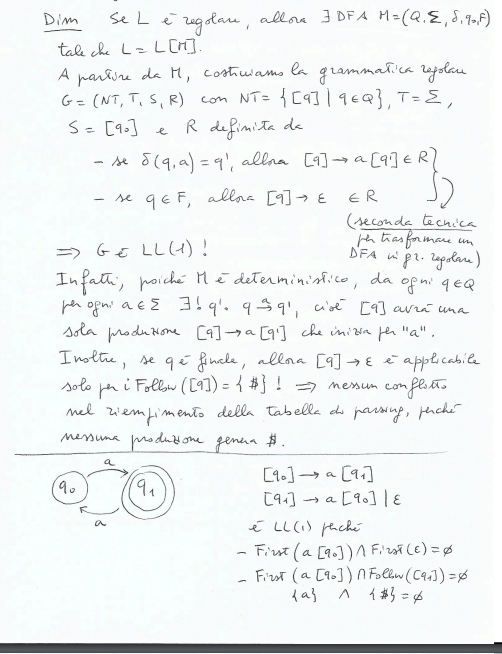 Dim Se L è regolare, allora ∃ DFA M=(Q,Σ,δ,q0,F)
tale che L = L[M].
A partire da M, costruiamo la grammatica regolare
G = (NT, T, S, R) con NT = {[q] | q∈Q}, T=Σ,
S = [q0] e R definita da
- se δ(q,a) = q', allora [q] → a[q'] ∈ R
- se q ∈ F, allora [q] → ε ∈ R
(seconda tecnica
per trasformare un
DFA in gr. regolare)
⟹ G è LL(1) !
Infatti, poiché M è deterministico, da ogni q∈Q
per ogni a∈Σ ∃! q'. q →a q', cioè [q] avrà una
sola produzione [q] → a[q'] che inizia per "a".
Inoltre, se q è finale, allora [q] → ε è applicabile
solo per i Follow([q]) = {$} ! ⟹ nessun conflitto
nel riempimento della tabella di parsing, perché
nessuna produzione genera $.
a
q0 q1
a
[q0] → a [q1]
[q1] → a [q0] | ε
è LL(1) perché
- First(a[q0]) ∩ First(ε) = ∅
- First(a[q0]) ∩ Follow([q1]) = ∅
{a} ∩ {$} = ∅